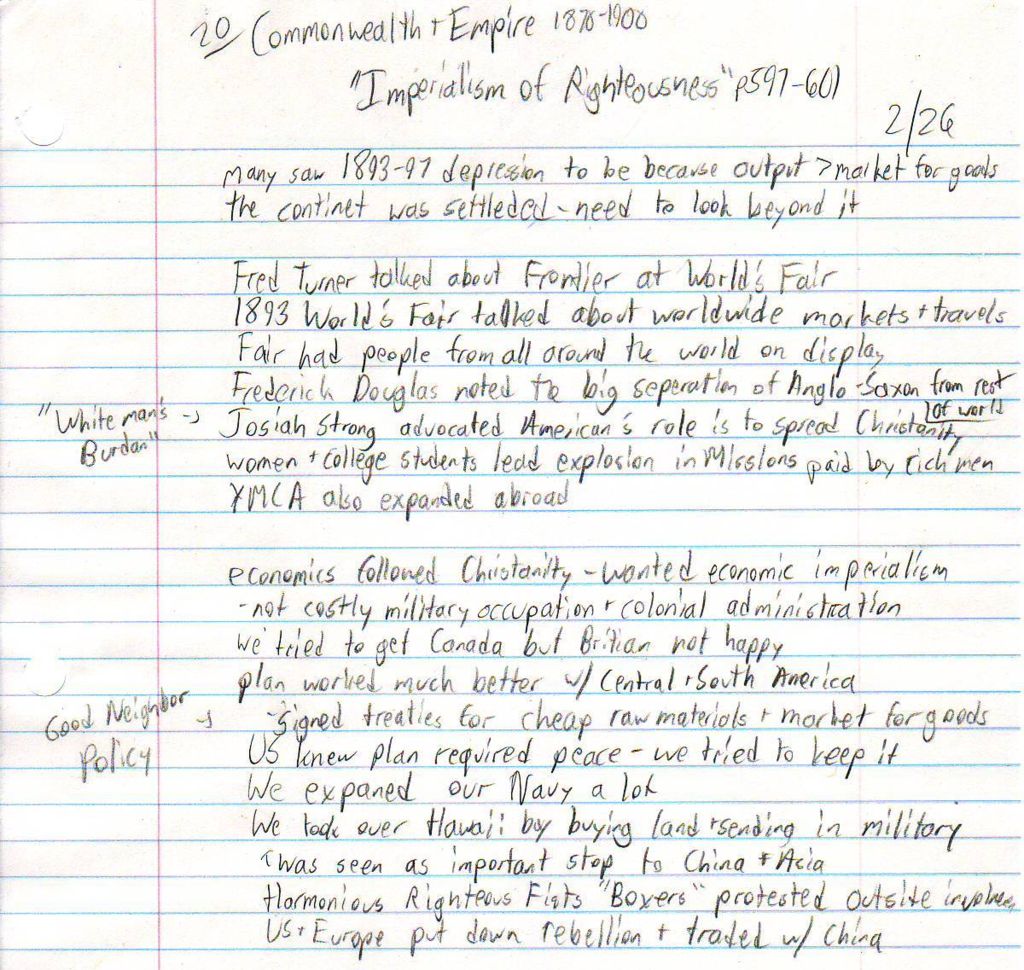 20 Commonwealth + Empire 1870-1900
"Imperialism of Righteousness" p597-601
2/26
Many saw 1893-97 depression to be because output > market for goods
the continet was settleded - need to look beyond it
Fred Turner talked about Frontier at World's Fair
1893 World's Fair talked about worldwide markets + travels
Fair had people from all around the world on display
Frederick Douglas noted to big seperation of Anglo-Saxon from rest
of world
"White man's → Josiah Strong advocated American's role is to spread Christanity
Burdan"
women + college students lead explosion in Missions paid by rich men
YMCA also expanded abroad
economics followed Christanity - wanted economic imperialism
-not costly military occupation + colonial administration
we tried to get Canada but Britian not happy
plan worked much better w/ Central + South America
Good Neighbor → -signed treaties for cheap raw materials + market for goods
Policy
US knew plan required peace - we tried to keep it
We expaned our Navy a lot
We took over Hawaii by buying land + sending in military
↑was seen as important stop to China + Asia
Harmonious Righteous Fists "Boxers" protested outside
US + Europe put down rebellion + traded w/ China